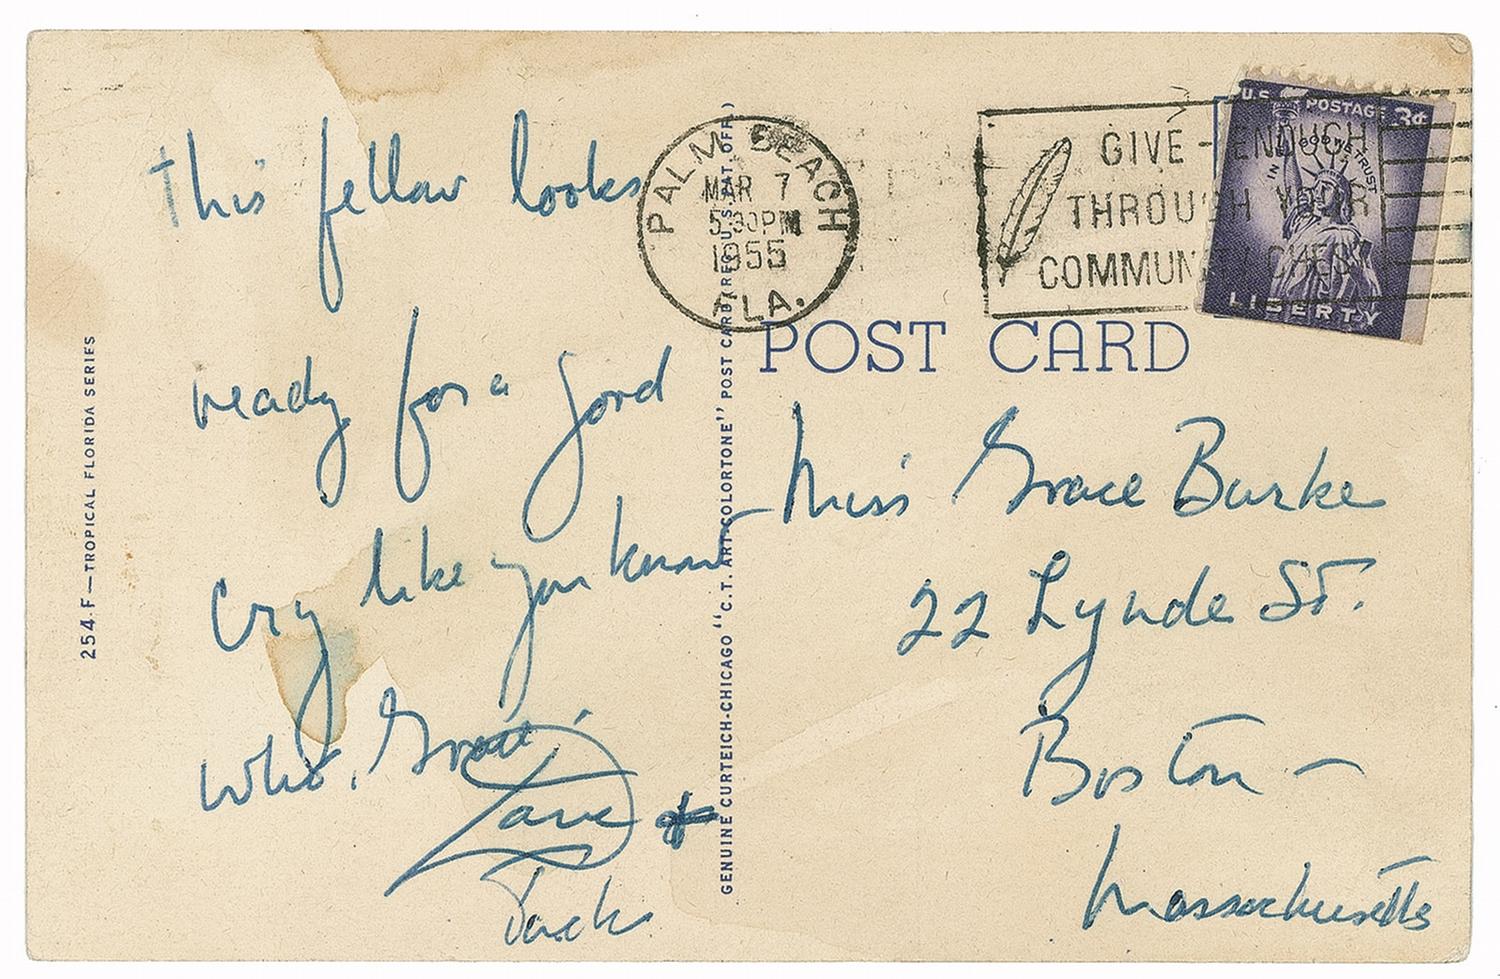 this fellow looks
ready for a good
cry like you know
who, Grace.
Love
Jack
254.F—TROPICAL FLORIDA SERIES
GENUINE CURTEICH-CHICAGO "C.T. ART-COLORTONE" POST CARD (REG. U.S. PAT. OFF.)
PALM BEACH
MAR 7
5:30PM
1955
FLA.
GIVE - ENOUGH
THROUGH YOUR
COMMUNITY CHEST
U.S. POSTAGE 3¢
IN GOD WE TRUST
LIBERTY
POST CARD
Miss Grace Burke
22 Lynde St.
Boston —
Massachusetts